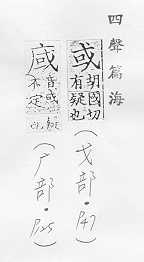 四聲篇海
或 胡國切
有疑也
(戈部·P47)
音或
不定
(广部·P25)